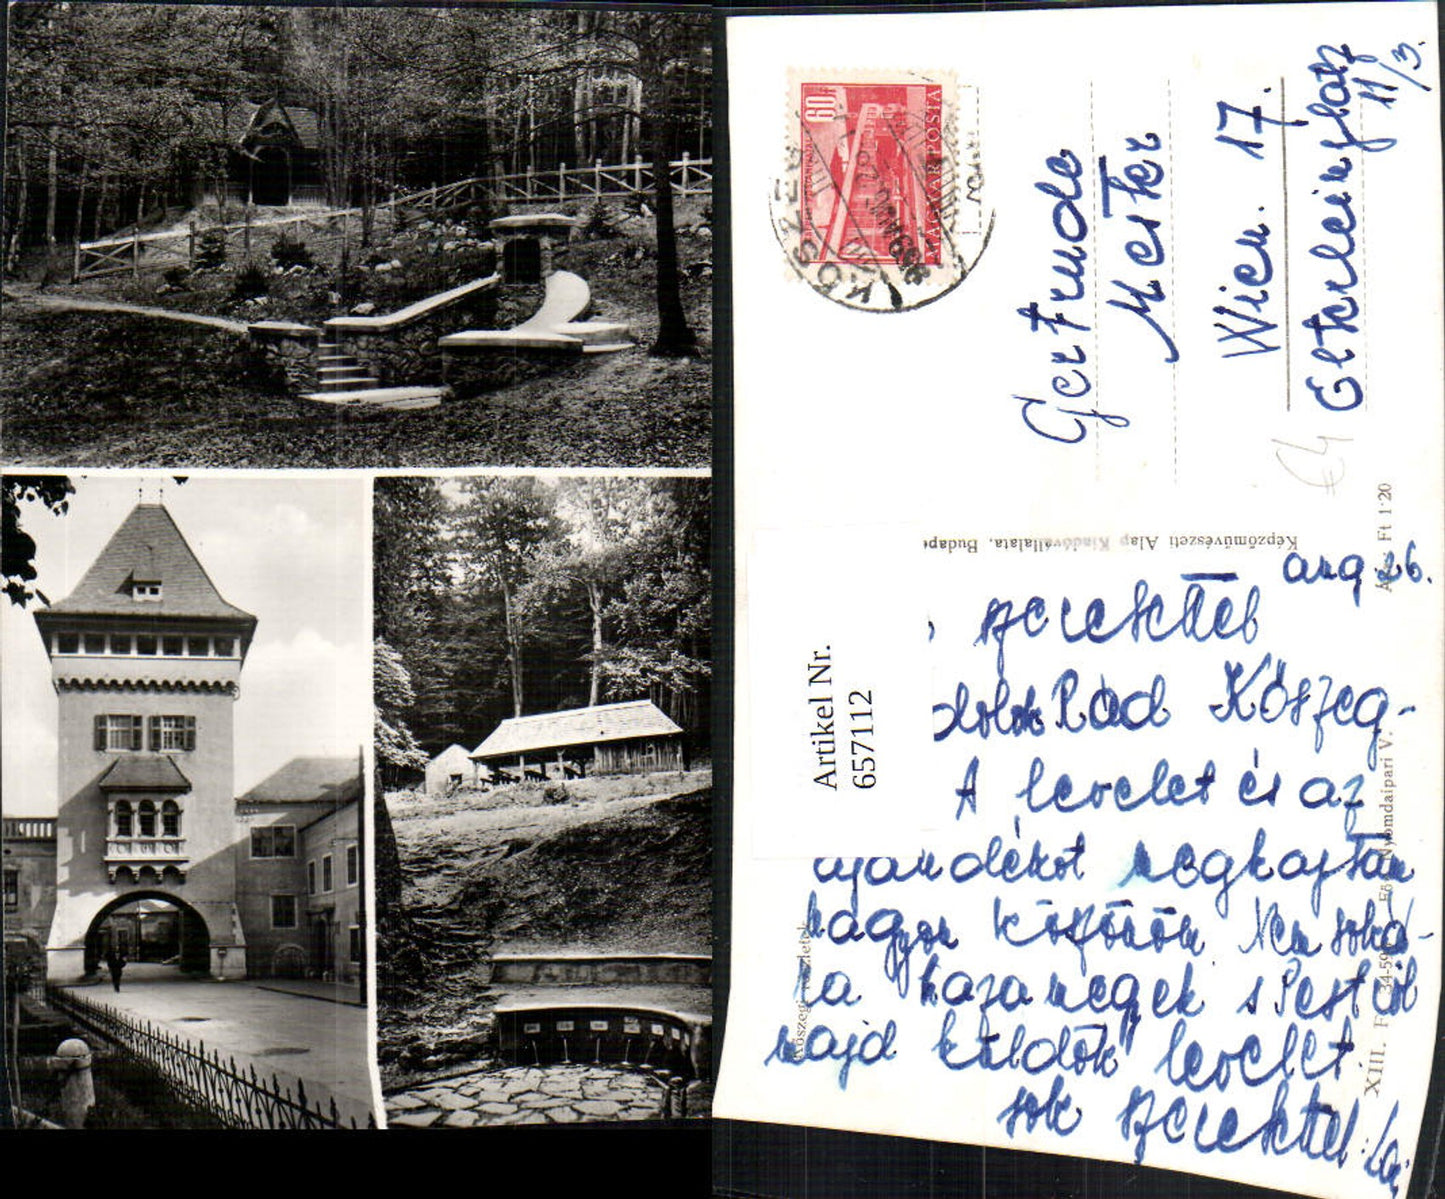 60f
MAGYAR POSTA
KŐSZEG
Gertrude
Mester
Wien. 17.
11/3.
Képzőművészeti Alap Kiadóvállalata, Budap
Ft 1·20
aug. 26.
szeretettel
Rád Kőszeg-
A levelet és az
ajándékot megkaptam
nagyon köszönöm Nem soká-
ra hazamegyek s Pestről
majd küldök levelet.
sok szeretettel:
Artikel Nr.
657112
Kőszegi részletek
XIII. F. 34-59
Nyomdaipari V.